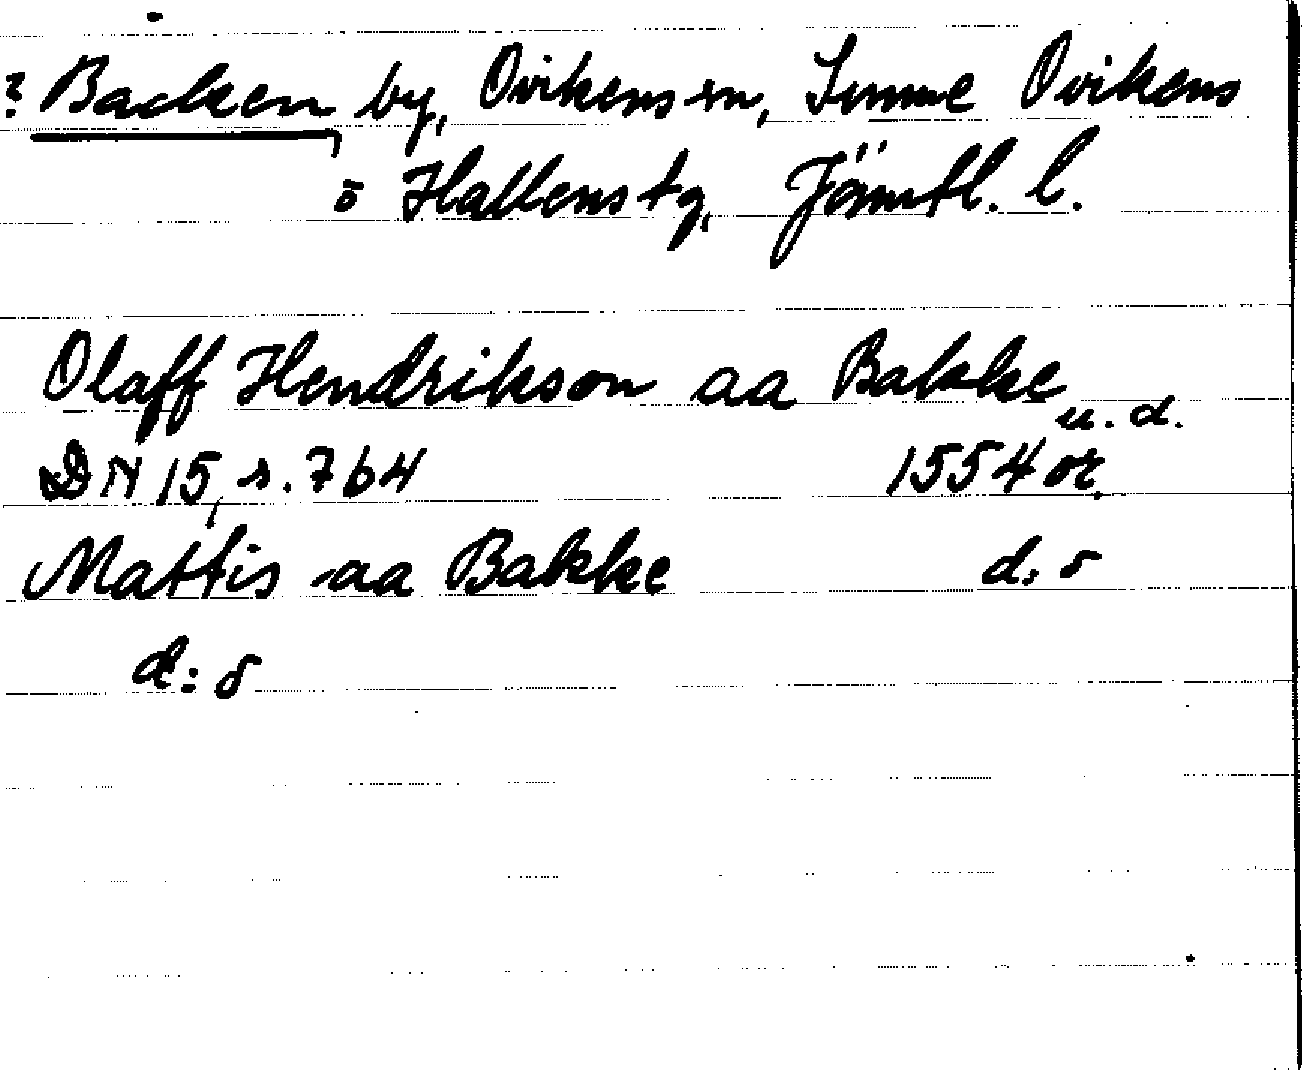 ? Backen by, Ovikens sn, Sunne Ovikens
o Hallens tg, Jämtl. l.
Olaff Hendrikson aa Bakke
u. d.
DN 15, s. 764 1554 or.
Mattis aa Bakke d. o
d:o